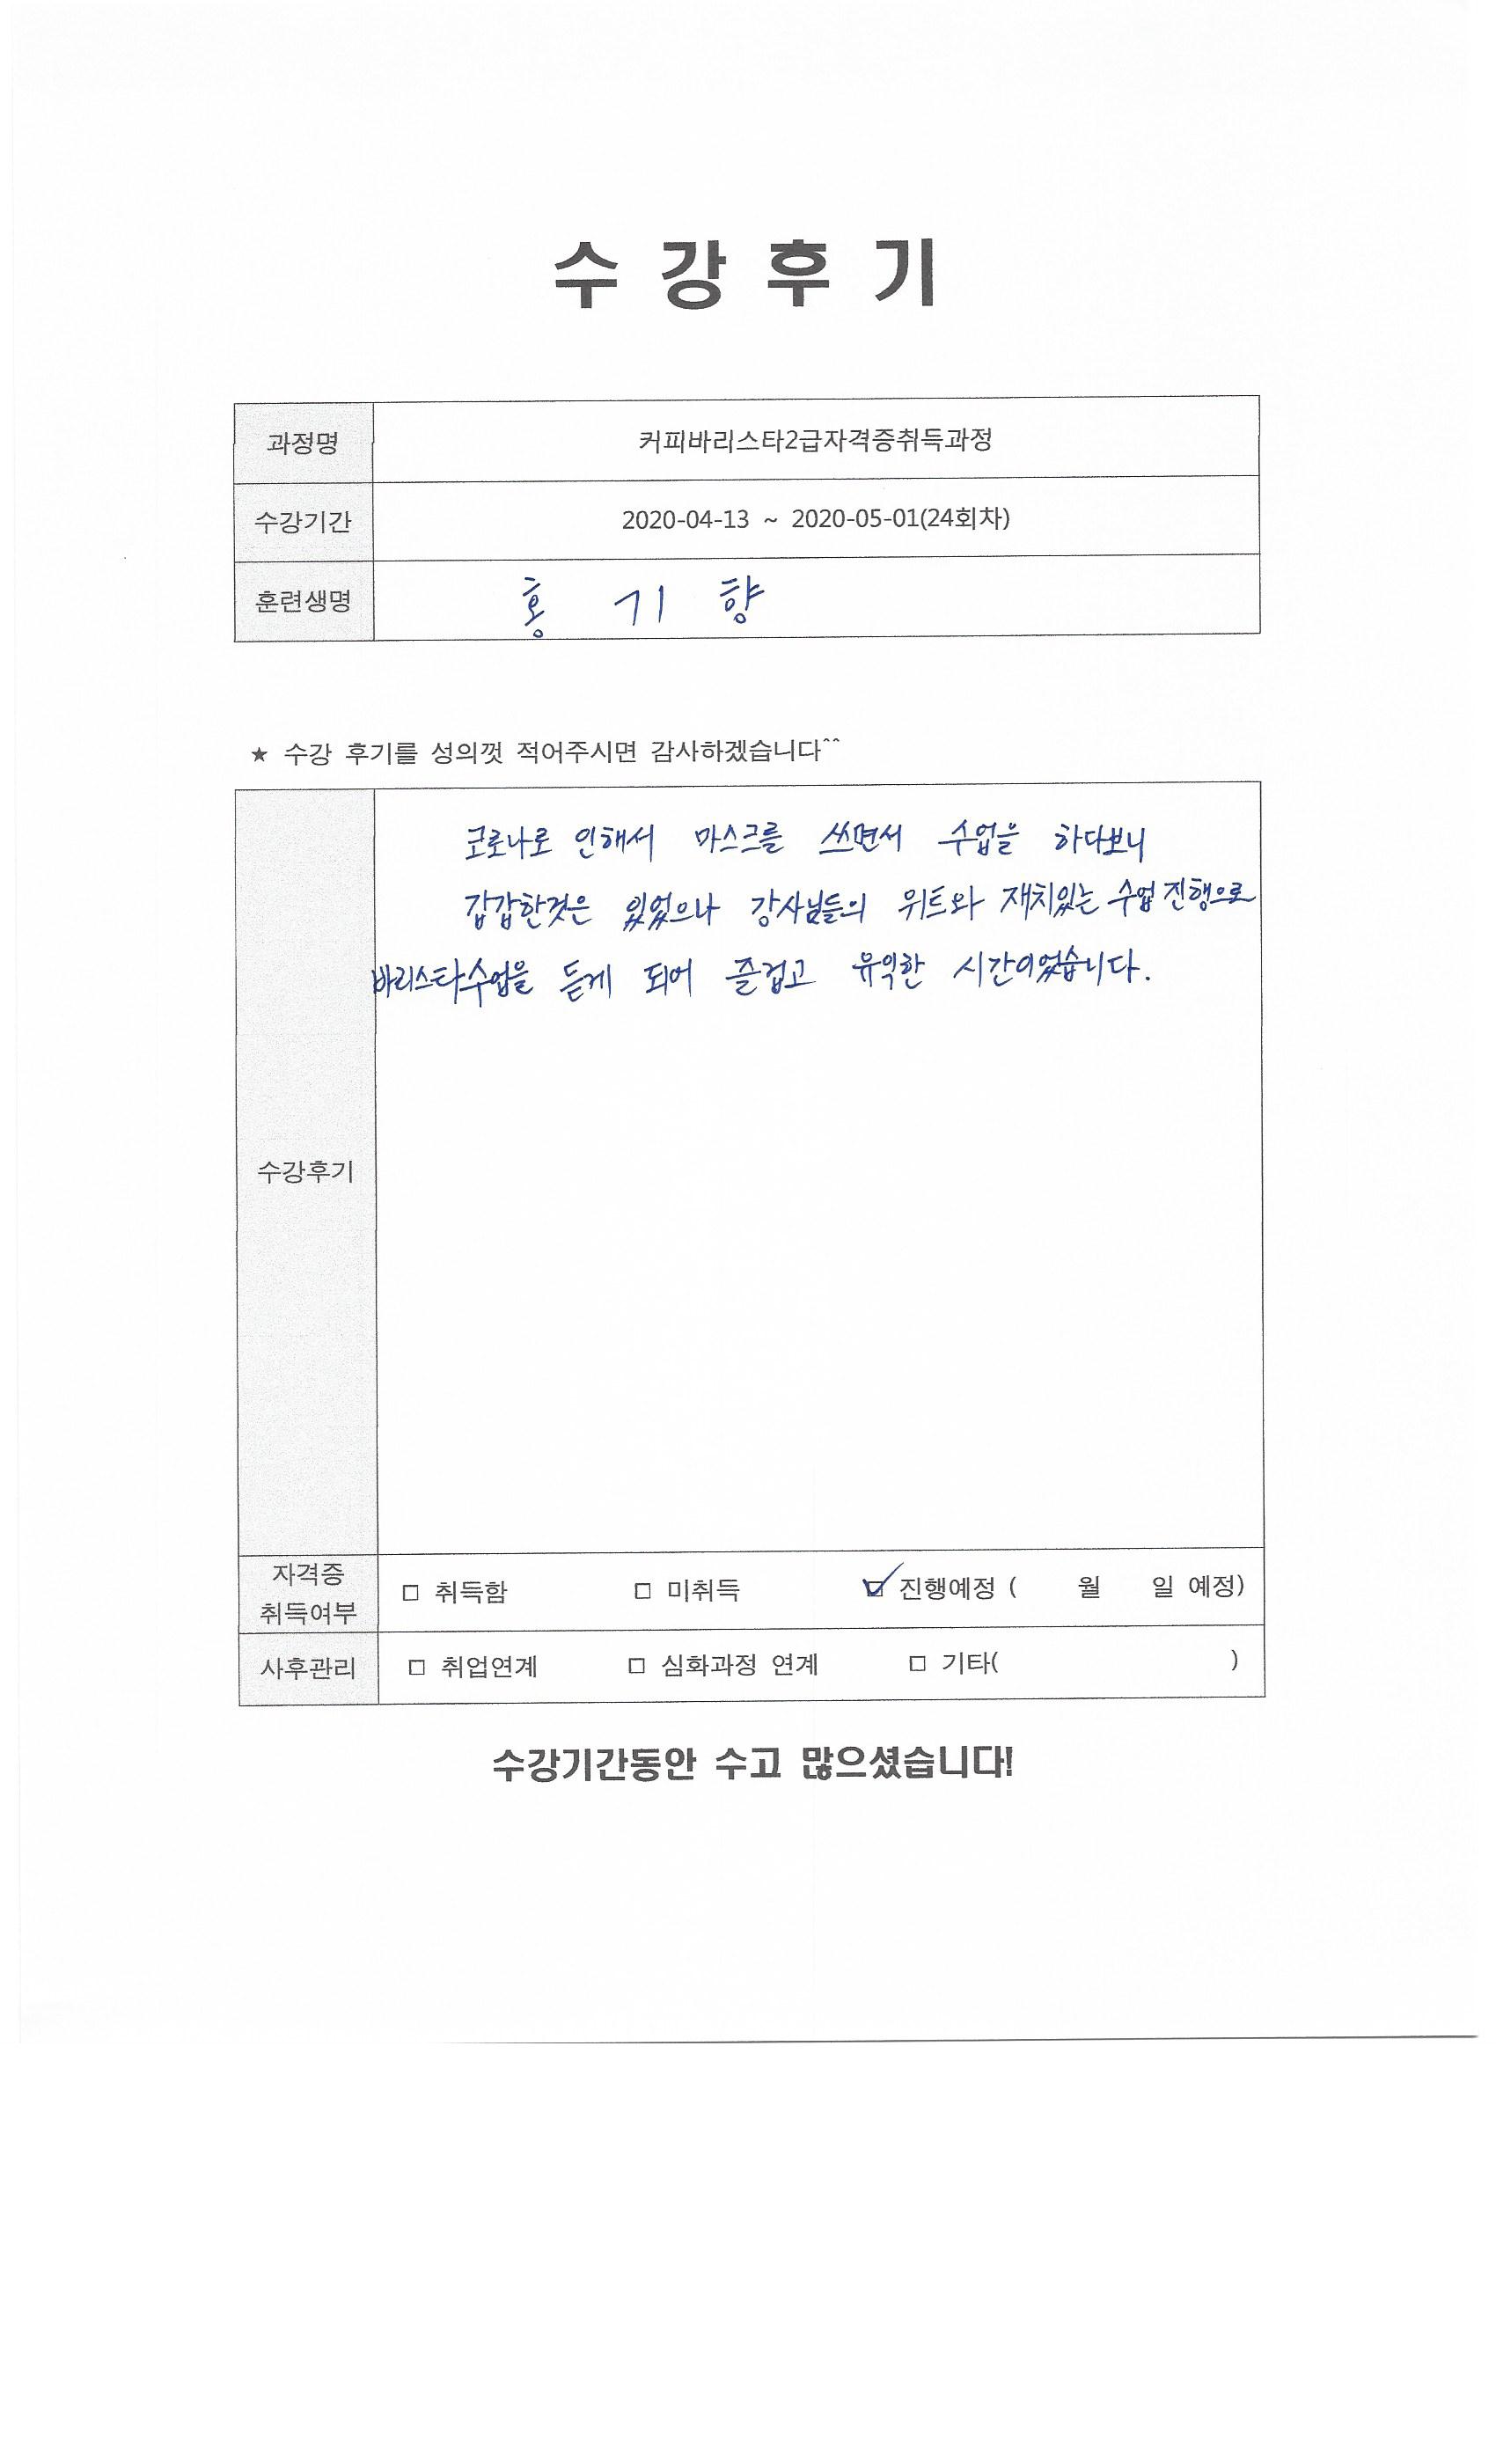 수 강 후 기
과정명 커피바리스타2급자격증취득과정
수강기간 2020-04-13 ~ 2020-05-01(24회차)
훈련생명 홍 기 향
★ 수강 후기를 성의껏 적어주시면 감사하겠습니다^^
코로나로 인해서 마스크를 쓰면서 수업을 하다보니
갑갑한것은 있었으나 강사님들의 위트와 재치있는 수업 진행으로
바리스타수업을 듣게 되어 즐겁고 유익한 시간이었습니다.
수강후기
자격증
취득여부
□ 취득함 □ 미취득 ☑ 진행예정 ( 월 일 예정)
사후관리 □ 취업연계 □ 심화과정 연계 □ 기타( )
수강기간동안 수고 많으셨습니다!